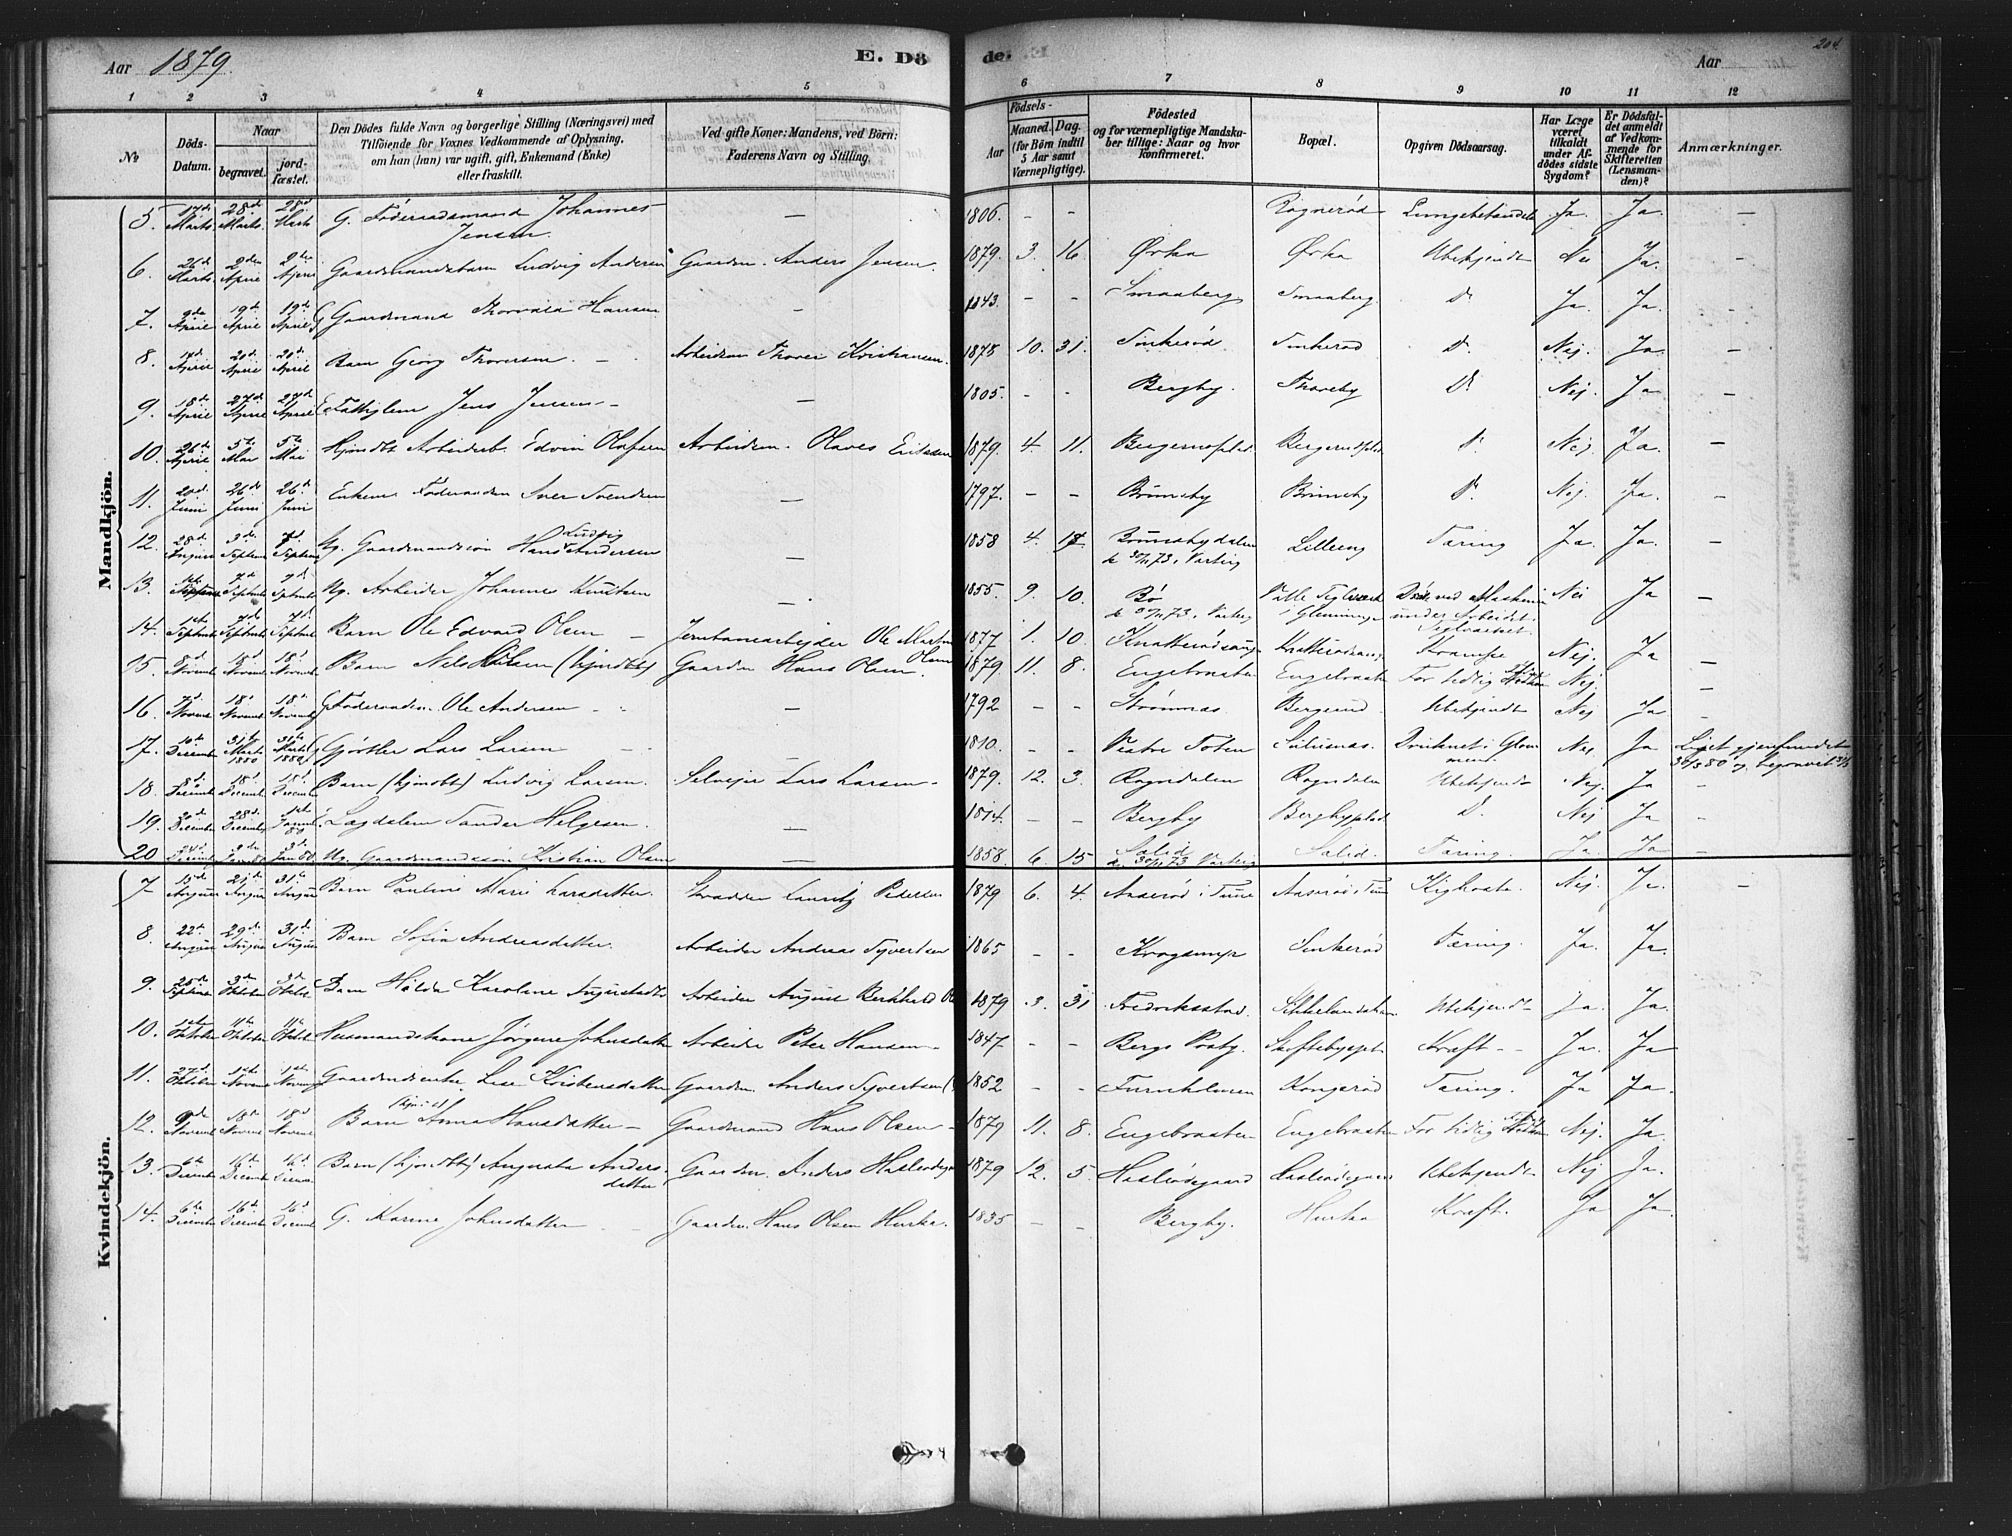 Aar 1879.
E. Dö
de.
Aar
204
1 2 3 4 5 6 7 8 9 10 11 12
No
Döds-Datum.
Naar
begravet.
jord-fæstet.
Den Dödes fulde Navn og borgerlige Stilling (Næringsvei) med
Tilföiende for Voxnes Vedkommende af Oplysning,
om han (hun) var ugift, gift, Enkemand (Enke)
eller fraskilt.
Ved gifte Koner: Mandens, ved Börn:
Faderens Navn og Stilling.
Födsels-
Aar
Maaned.
Dag.
(for Börn indtil
5 Aar samt
Værnepligtige).
Födested
og for værnepligtige Mandska-
ber tillige: Naar og hvor
konfirmeret.
Bopæl.
Opgiven Dödsaarsag.
Har Læge
været
tilkaldt
under Af-
dödes sidste
Sygdom?
Er Dödsfal-
det anmeldt
af Vedkom-
mende for
Skifteretten
(Lensman-
den)?
Anmærkninger.
Mandkjön.
5. 17de Marts 28de Marts 28de Marts G. Föderaadsmand Johannes Jensen. — 1806. - - Rognerød Lungebetændelse Ja. Ja. —
6. 26de Marts 2den April 2den April Gaardmandsbarn Ludvig Andersen Gaardm. Anders Jensen. 1879. 3. 16. Ørka Ørka Ubekjendt Nei Ja. —
7. 9de April 19de April 19de April G. Gaardmand Thorvald Hansen — 1843. - - Smaaberg Smaaberg. Do Ja. Ja. —
8. April 20de April 20de April Barn Georg Thoresen. — Arbeidsm Thorer Kristiansen. 1878 10. 31. Tinkerød Tinkerød Do. Nej. Ja. —
9. 18de April 27de April 27de April E. Fattiglem Jens Jensen — — 1805. - - Bergby. Thoreby Do Nej. Ja —
10. 26de April 5te Mai 5te Mai Hjmdbt Arbeiderb. Edvin Olafsen Arbeidsm. Olaves Eriksen 1879. 4. 11. Do. Nej. Ja. —
11. 20de Juni 26de Juni 26de Juni Enkem. Iver Svendsen — 1797. - - Brünsby Brünsby Do. Nej. Ja. —
12. 28de August 3de Septem 7de Septem Ug. Gaardmandssön Hans Ludvig Andersen — 1858 4. 17. Brünsbydalen k. 30/11 73, Varteig Lilleeng Tæring Ja. Ja. —
13. 1ste Septem 7de Septemb 7de Septemb Ug. Arbeider Johannes Knutsen — 1855. 9. 10. Bö k 30/11 73, Varteig Valle Teglverk i Glemminge Död ved Maskinen under Arbeidet. Teglværket. Nei Ja —
14. 1ste Septemb 7de Septemb 7de Septemb Barn Ole Edvard Olsen — Jernbanearbejder Ole Martin Olsen 1877 1. 10. Knatterødeng Knatterødeng. Krampe Nej. Ja —
15. 8de Novemb 18de Novemb 18de Novemb Barn Nils Hansen (hjmdbt) Gaardm Hans Olsen. 1879. 11. 8. Engebraaten Engebraaten For tidlig Födsel Nej. —
16. 7de Novemb 18de Novemb 18de Novemb G. Föderaadsm. Ole Andersen — — 1792 - - Strømnæs. Bergerud. Ubekjendt Nej Ja —
17. 10de Decembr 31te Marts 1880 31te Marts 1880 G. Gjörtler Lars Larsen — 1810. - - Vestre Toten Druknet i Glommen. Nei. Ja Liget gjenfundet 30/3 80 og begravet 31/3
18. 8de Decemb 18de Decemb 18de Decemb Barn (hjmdbt) Ludvig Larsen. Selvejer Lars Larsen — 1879. 12. 3. Rogndalen Rogndalen Ubekjendt Nej. Ja —
19. 20de Decembr 28de Decemb 1ste Januar 80 Lægdslem Sander Helgesen. — 1814. - - Bergby Bergbyplad Do. Nej Ja —
20 24de Decemb 3de Jan 80 3de Jan 80. Ug. Gaardmandssön Kristian Olsen — 1858. 6. 15 Solid k. 30/11 73 Varteig Solid. Tæring. Ja. Ja —
Kvindekjön.
7 15de August 21de August 31te August Barn Pauline Marie Larsdatter. Skrædder Lauritz Pedersen 1879 6. 4. Aaserød i Tune Aaserød i Tune Kighoste. Nej. Ja. —
8. 22de August 29de August 31te August Barn Sofia Andreasdatter. Arbeider Andreas Syvertsen 1865 - - Krogsmyr Sinkerød Tæring. Ja. Ja.
9. 25de Septemb 3de Oktober 3de Oktob Barn Hilda Karoline Augustsdatter Arbeider August 1879 3. 31 Fredriksstad. Ubekjendt Ja. Ja.
10. 1ste Oktober 11te Oktober 11te Oktob Husmandskone Jörgine Johnsdatter Arbeider Peter Hansen. 1847 - - Bergs Præstg. Kræft — Ja. Ja
11. 27de Oktober 1ste Novemb 1ste Novemb Gaardmdsenke Lise Kristensdatter Gaardm. Anders Syvertsen 1852 - - Furuholmen Kongerød Tæring. Ja Ja.
12. 9de Novemb 18de Novemb 18de Novemb Barn (hjmdbt) Anna Hansdatter — Gaardmand Hans Olsen — 1879 11. 8. Engebraaten Engebraaten For tidlig Födsel Nej. Ja.
13. 6te Decemb 16de Decemb 16de Decemb Barn (hjmdbt) Augusta Andersdatter Gaardm. Anders Haslerödgaard 1879 12. 5. Haslerödgaard Haslerödgaard Ubekjendt Nej Ja.
14. 6te Decemb 16de Decemb 16de Decemb G. Karine Johnsdatter — Gaardm. Hans Olsen Hurka. 1835 - - Bergby. Hurka Kræft. Ja Ja.